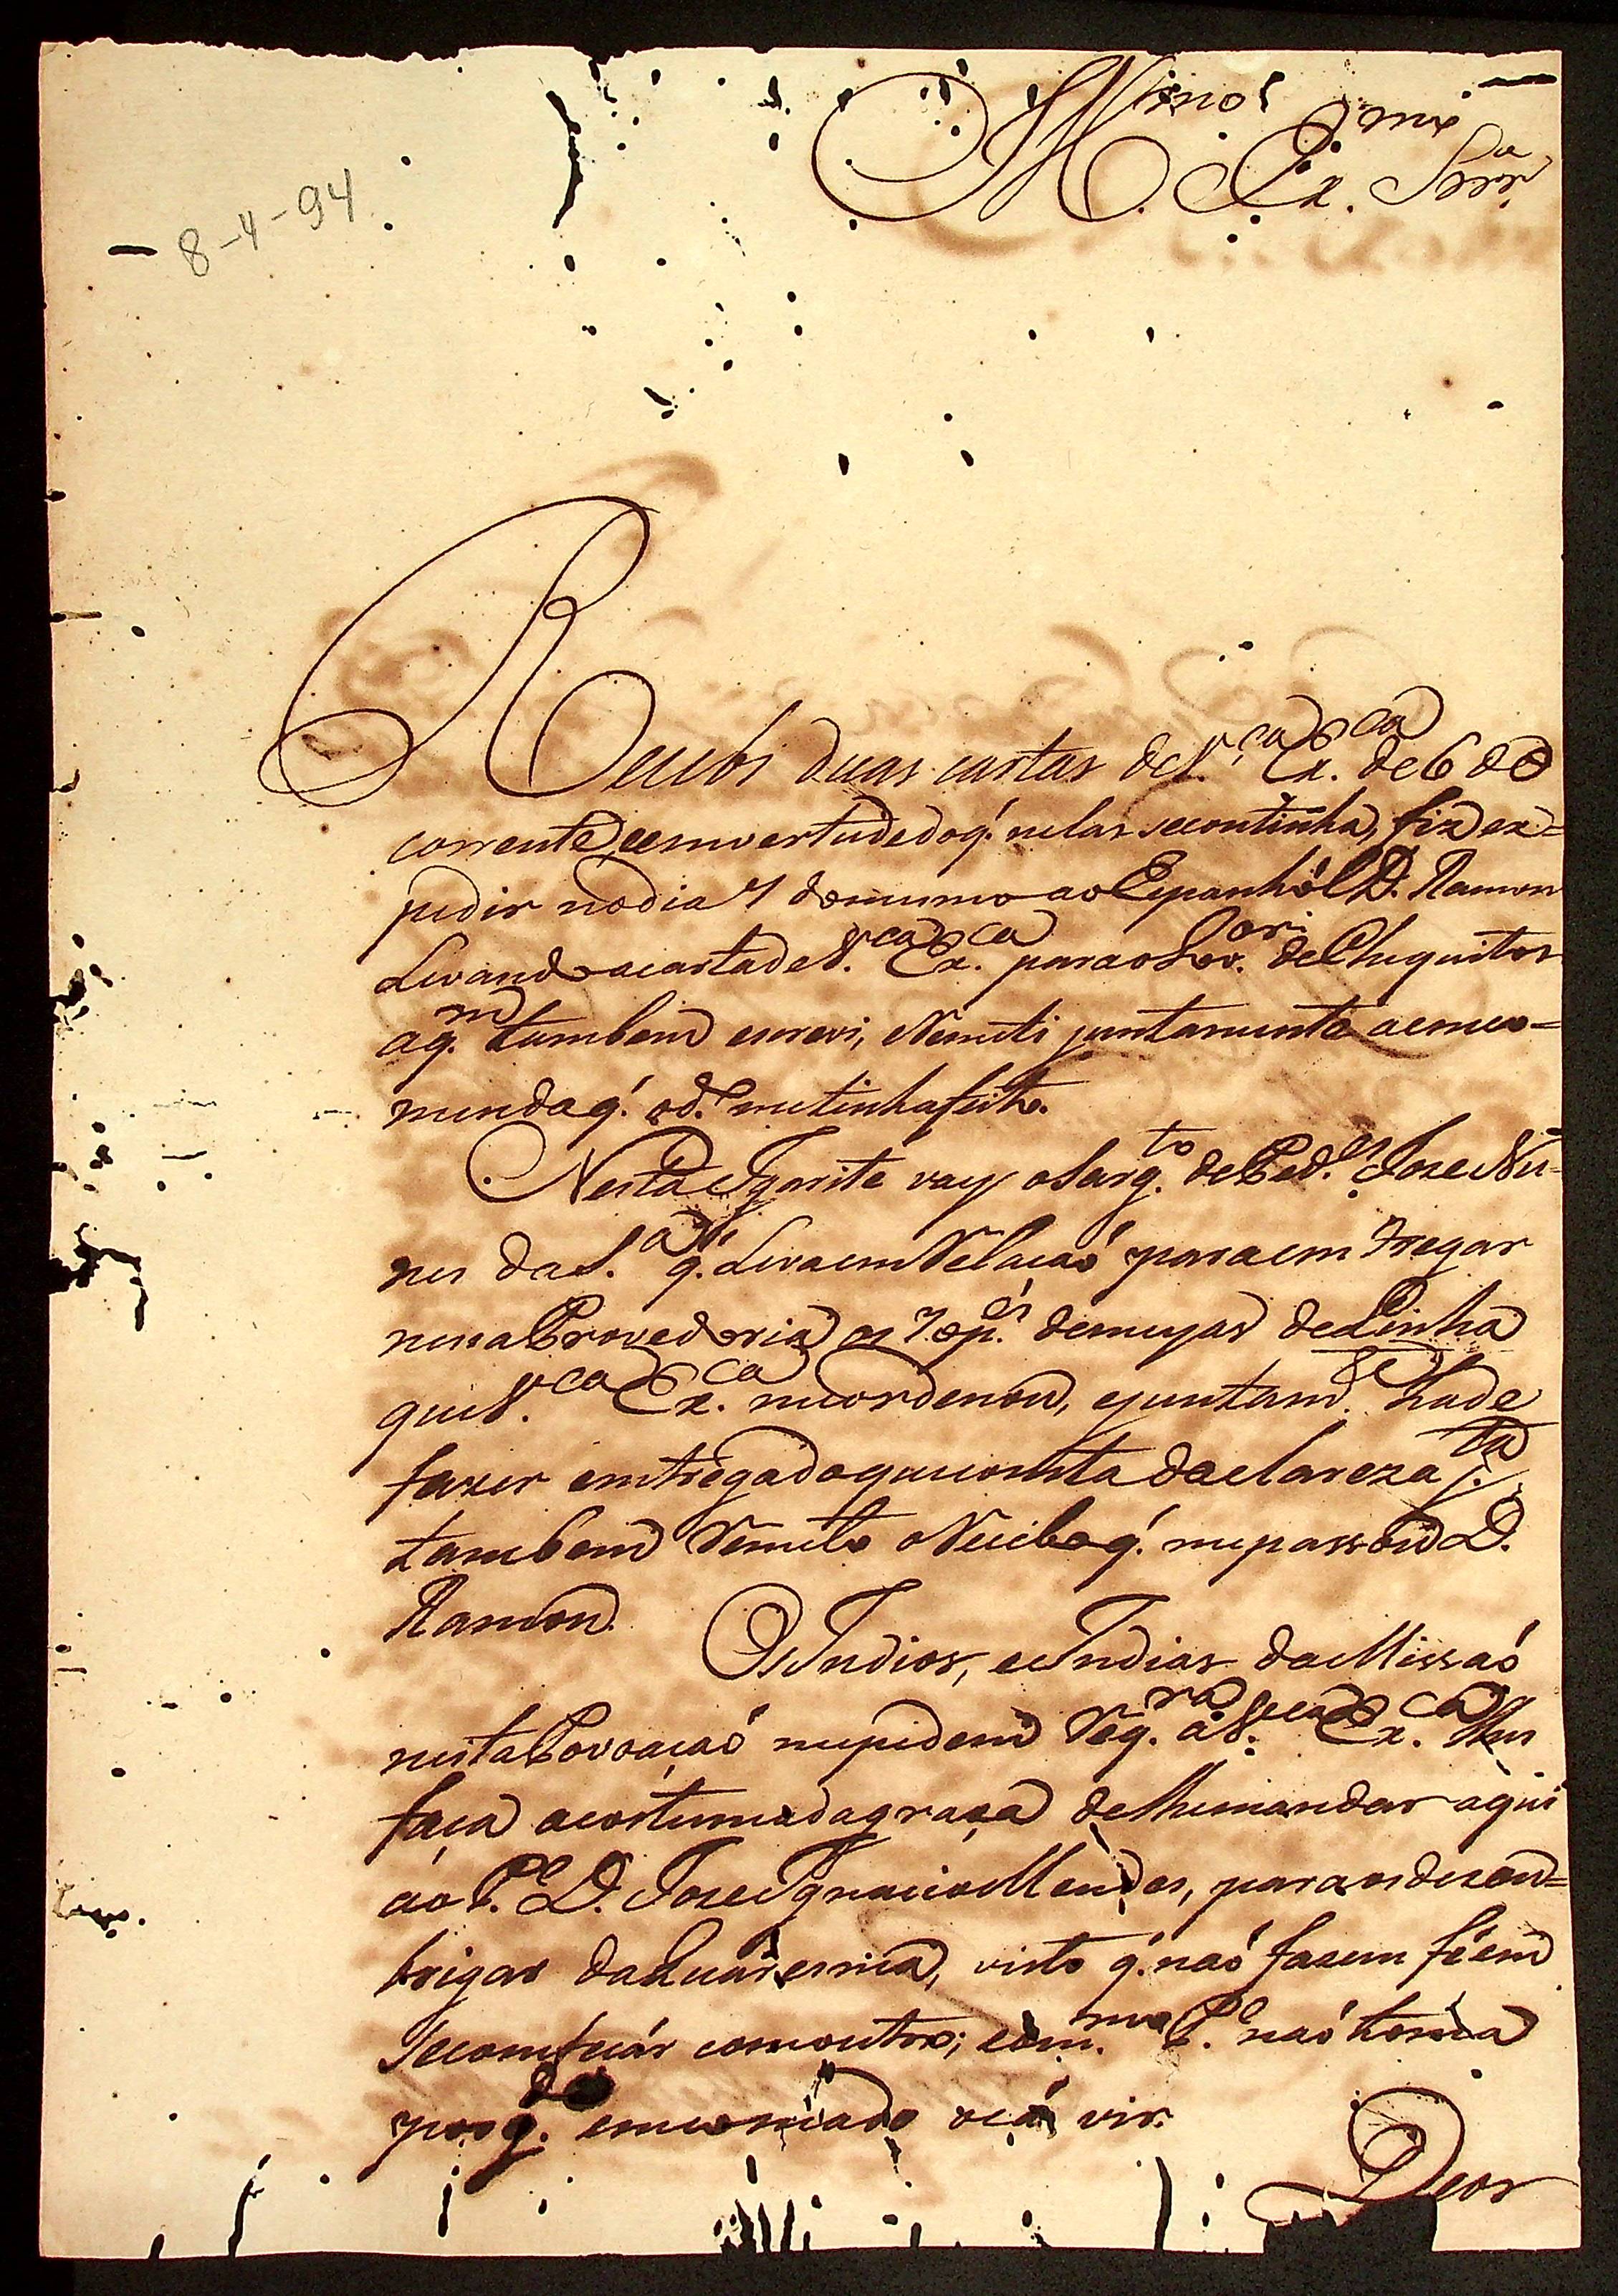 8-4-94
Ill.mo e Ex.mo Snr.
Recebi duas cartas de V.ca Ex.ca de 6 do
corrente, e em vertude do q̃. nelas se continha, fiz ex=
pedir no dia 7 do mesmo ao Espanhól D. Ramon
Levando a carta de V.ca Ex.ca para o Gov.or de Chiquitos
a q.m tambem escrevi, e Remeti juntamente a emco=
menda q̃. o d.o me tinha feito.
Nesta Igarite vay o Sarg.to de Ped.es Joze Nu=
nes da S.a q̃. Leva em Relaçaõ para emtregar
nessa Provedoria os 7 p.es de meyas de Linha
que V.ca Ex.ca me ordenou, e juntam.te hade
fazer emtrega do que consta da clareza j.ta
tambem Remeto o Recibo q̃. me passou D.
Ramon.
Os Indios, e Indias da Missaõ
nesta Povoaçaõ me pedem Rog.ra a V.ca Ex.ca lhes
faça a costumada graça de lhe mandar aqui
ao P.e D. Joze Ignacio Mendes, para os dezem=
brigar da Quaresma, visto q̃. naõ fazem fé em
se comfeçár com outro; e o m.mo P.e naõ toma
por q.do emcomodo o cá vir.
Deos